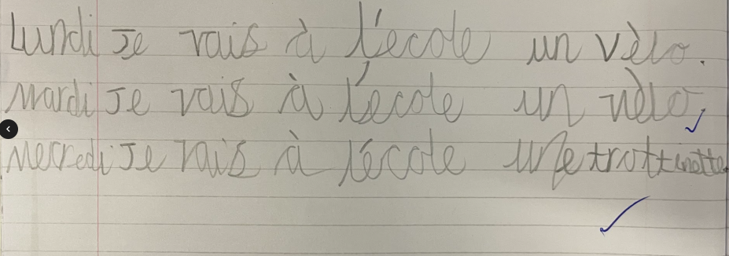 Lundi Je vais à l'ecole un vèlo.
Mardi Je vais à l'ecole un vèlo,
Mecredi Je vais à l'école une trottinette